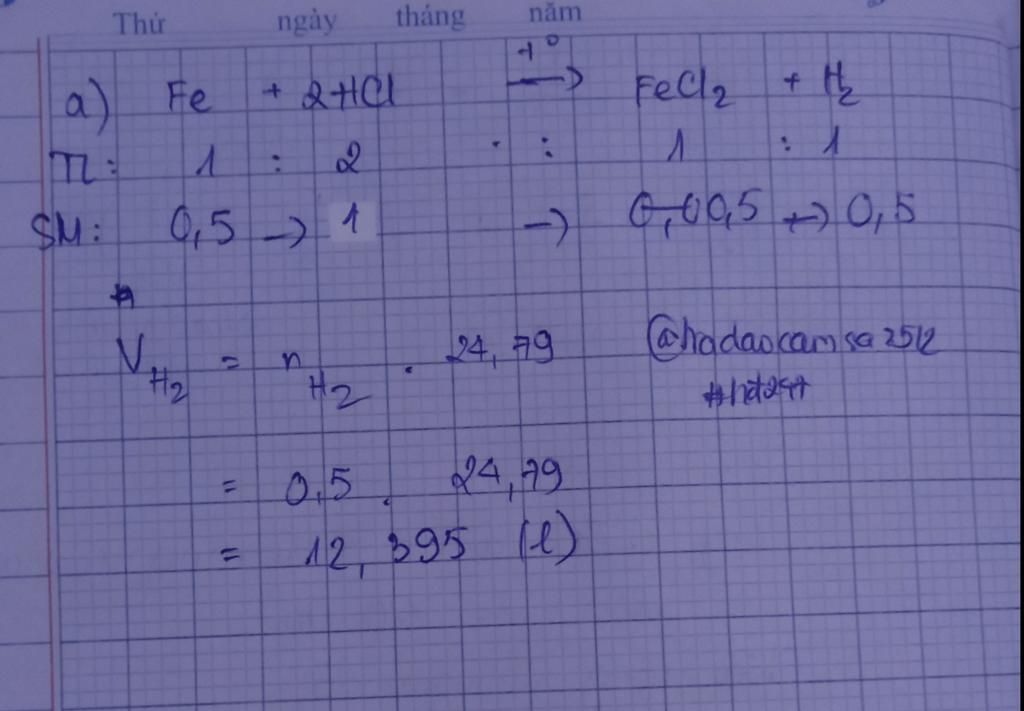 Thứ ngày tháng năm
a) Fe + 2HCl t° → FeCl2 + H2
TL: 1 : 2 : 1 : 1
SM: 0,5 → 1 → 0,5 → 0,5
VH2 = nH2 . 24,79 @hadaocamsa2512
= 0,5 . 24,79
= 12,395 (l)